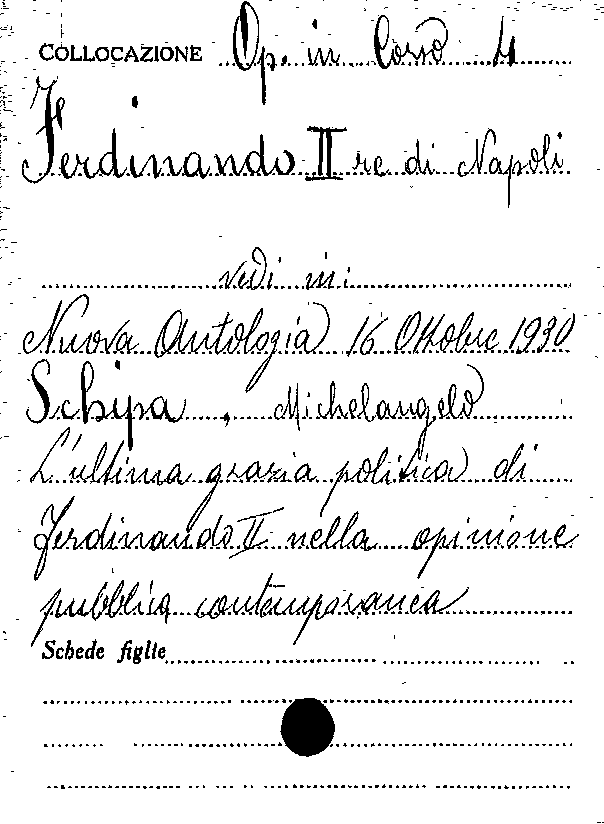 COLLOCAZIONE Op. in Corso 4
Ferdinando II re di Napoli
vedi in:
Nuova Antologia 16 Ottobre 1930
Schipa, Michelangelo
L'ultima grazia politica di
Ferdinando II nella opinione
pubblica contemporanea
Schede figlie